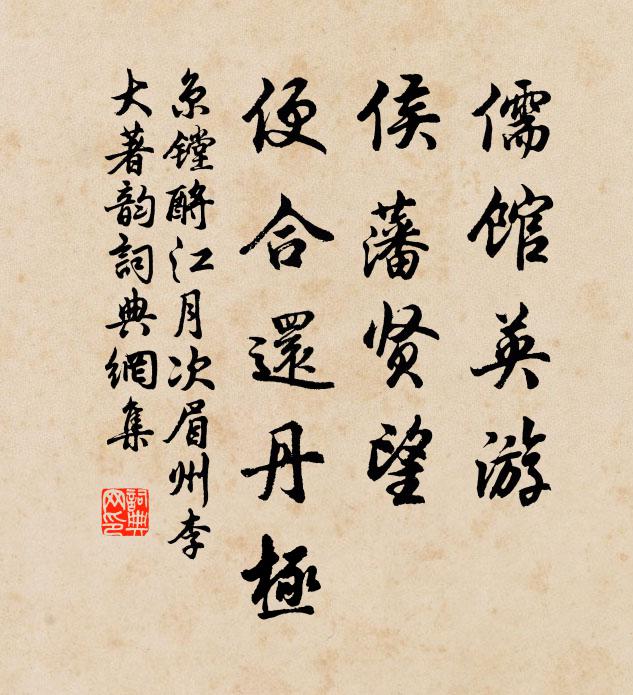 儒馆英游
侯藩贤望
便合還丹極
京镗酹江月次眉州李
大著韵詞典網集
詞典网印